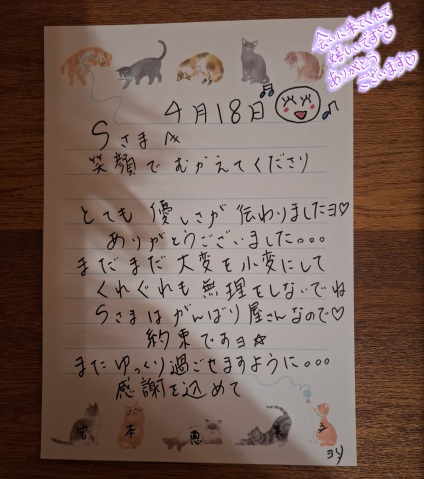 会いに来てくれて
嬉しいです♡
ありがとう
ございます♡
4月18日
Sさまへ
笑顔でむかえてくださり
とても優しさが伝わりましたヨ♡
ありがとうございました。。。
まだまだ大変を小変にして
くれぐれも無理をしないでね
Sさまはがんばり屋さんなので♡
約束ですヨ☆
またゆっくり過ごせますように。。。
感謝を込めて
本 恵
ヨリ